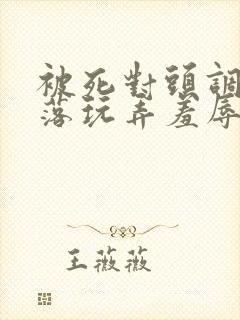 被死對頭調
落玩弄羞辱
王薇薇